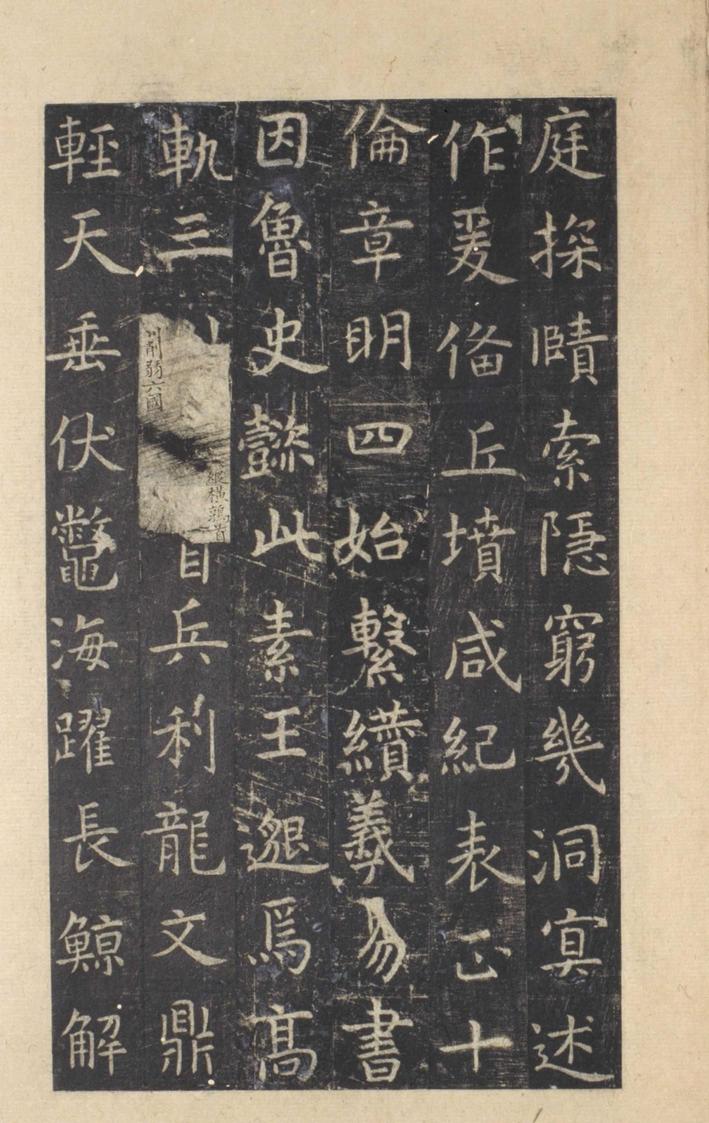 庭探賾索隱窮幾洞㝠述
作爰俻丘墳咸紀表正十
倫章眀四始繫纘羲易書
因魯史懿此素王邈焉高
軌三
川削弱六國
縱橫鶉首
首兵利龍文鼎
輕天垂伏鼈海躍長鯨解